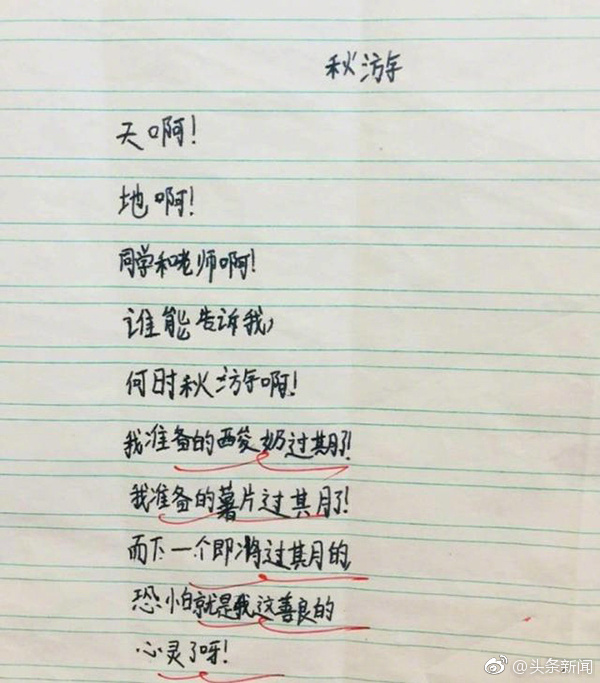 秋游
天啊！
地啊！
同学和老师啊！
谁能告诉我，
何时秋游啊！
我准备的酸奶过期了！
我准备的薯片过期了！
而下一个即将过期的
恐怕就是我这善良的
心灵了呀！
@头条新闻